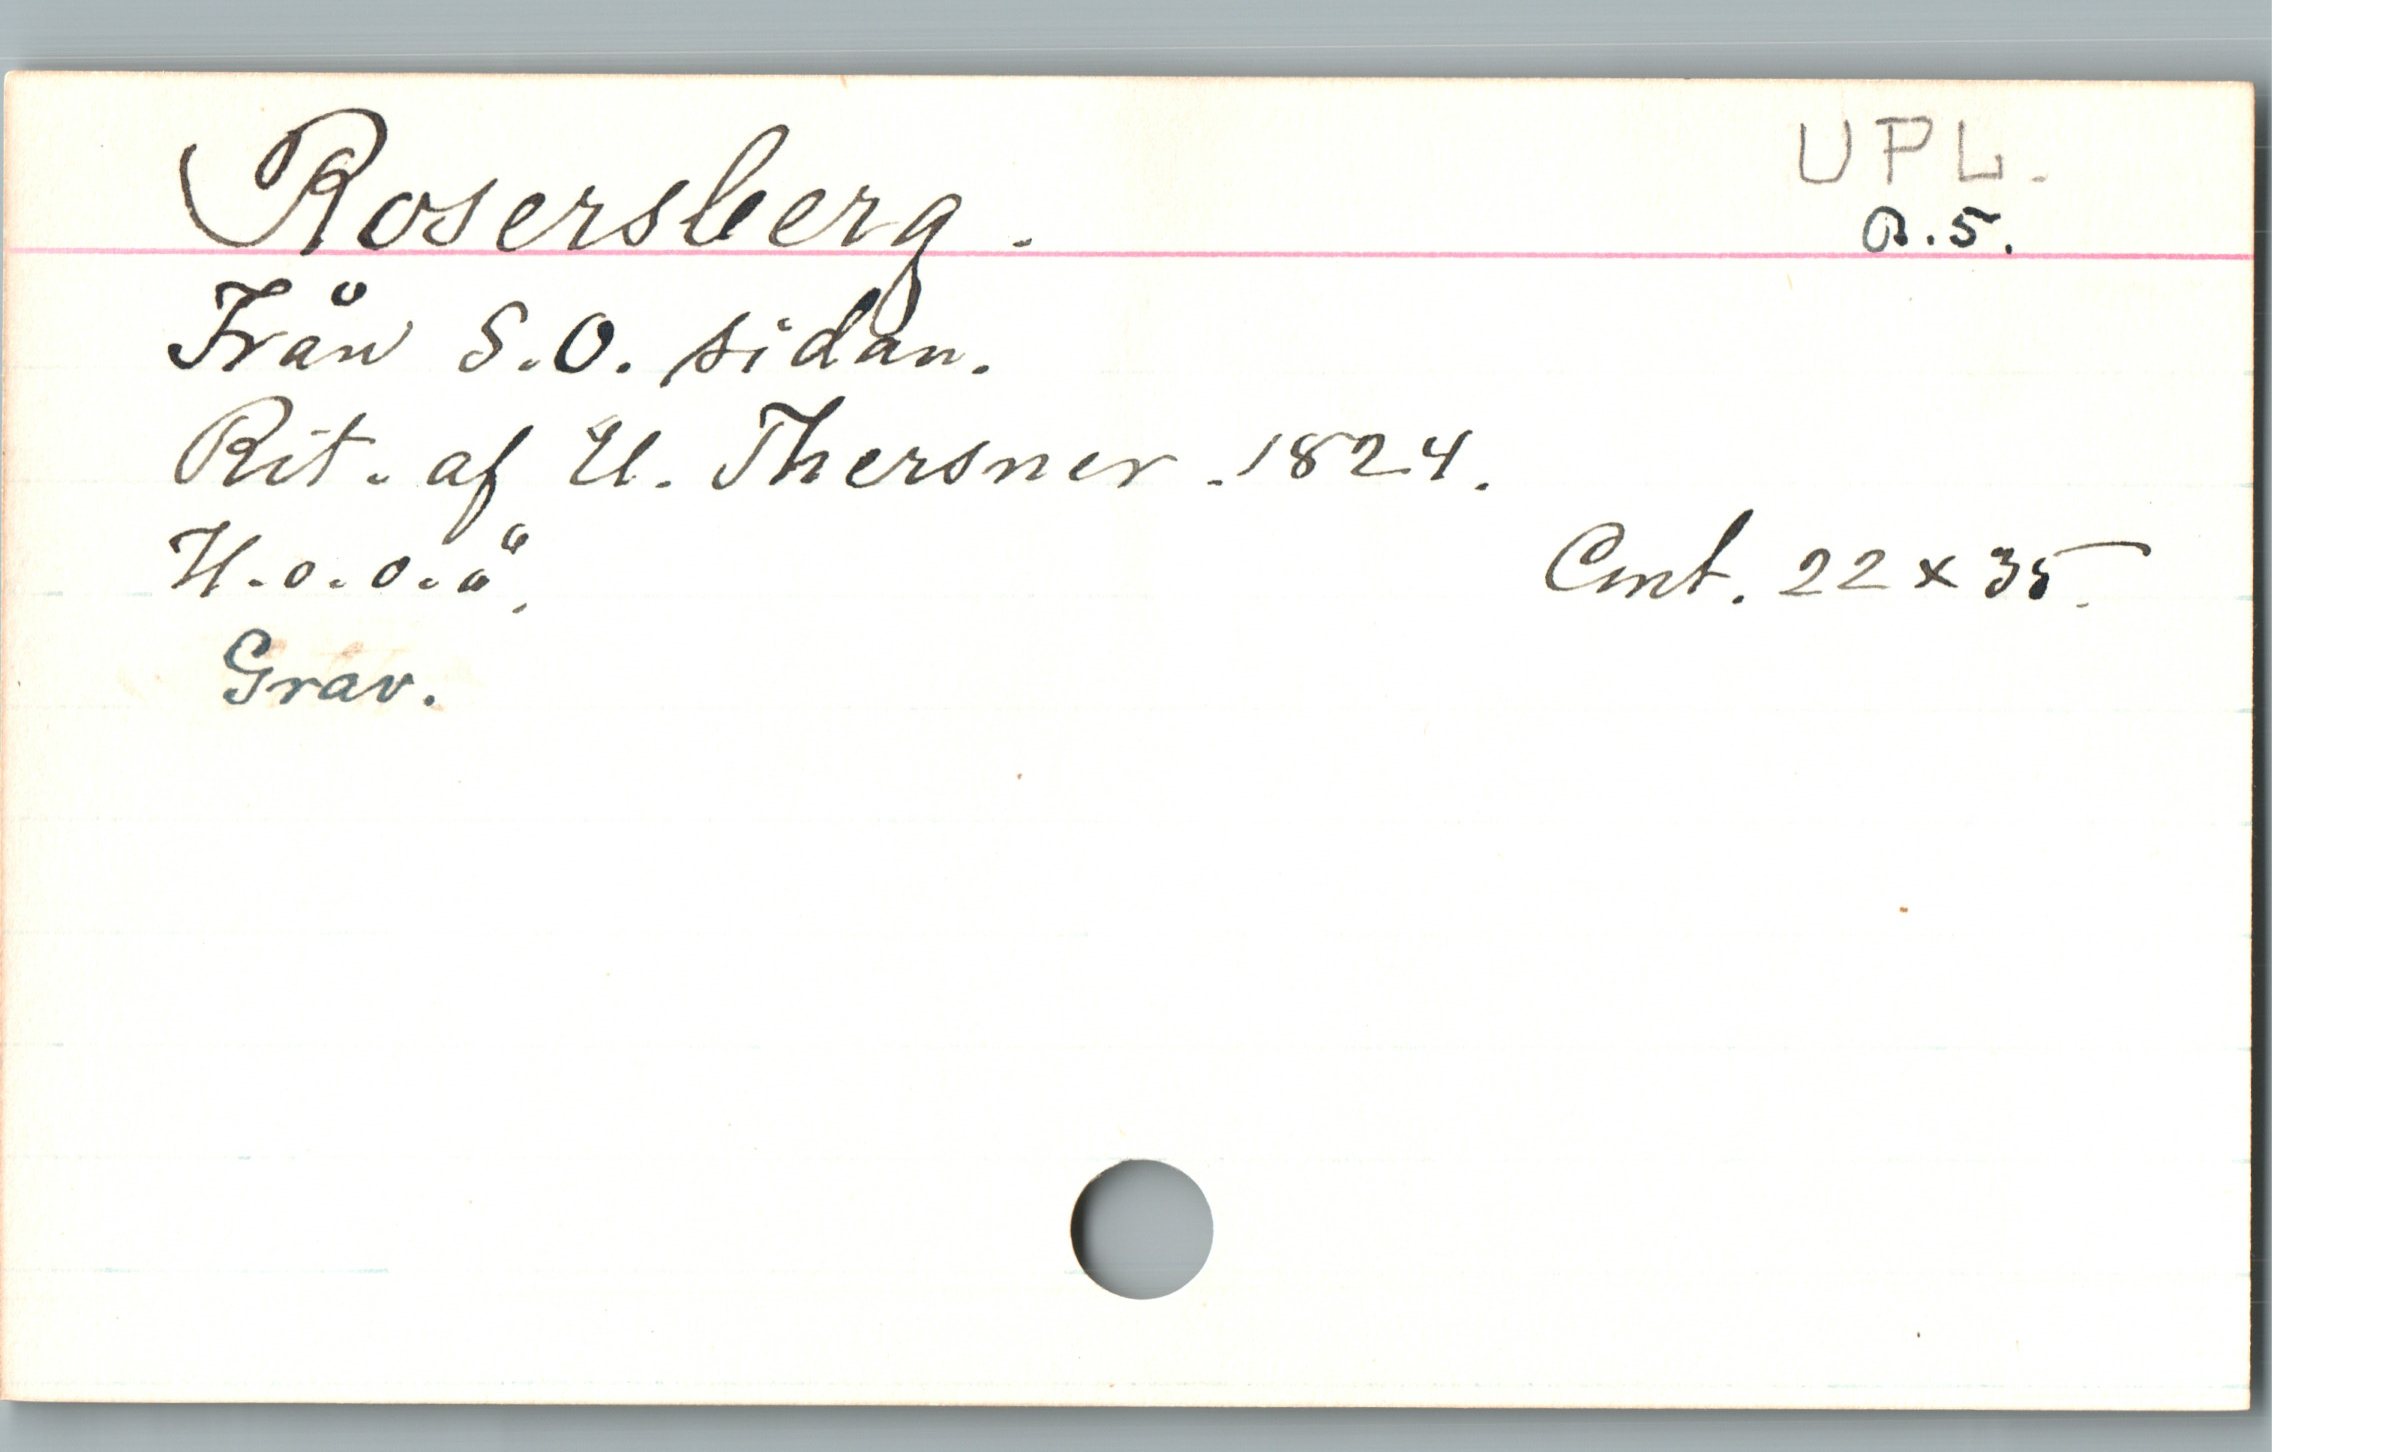 Rosersberg.
UPL.
R.5.
Från S.O. sidan.
Rit. af U. Thersner. 1824.
H.o.o.ö.
Cmt. 22 x 35.
Grav.